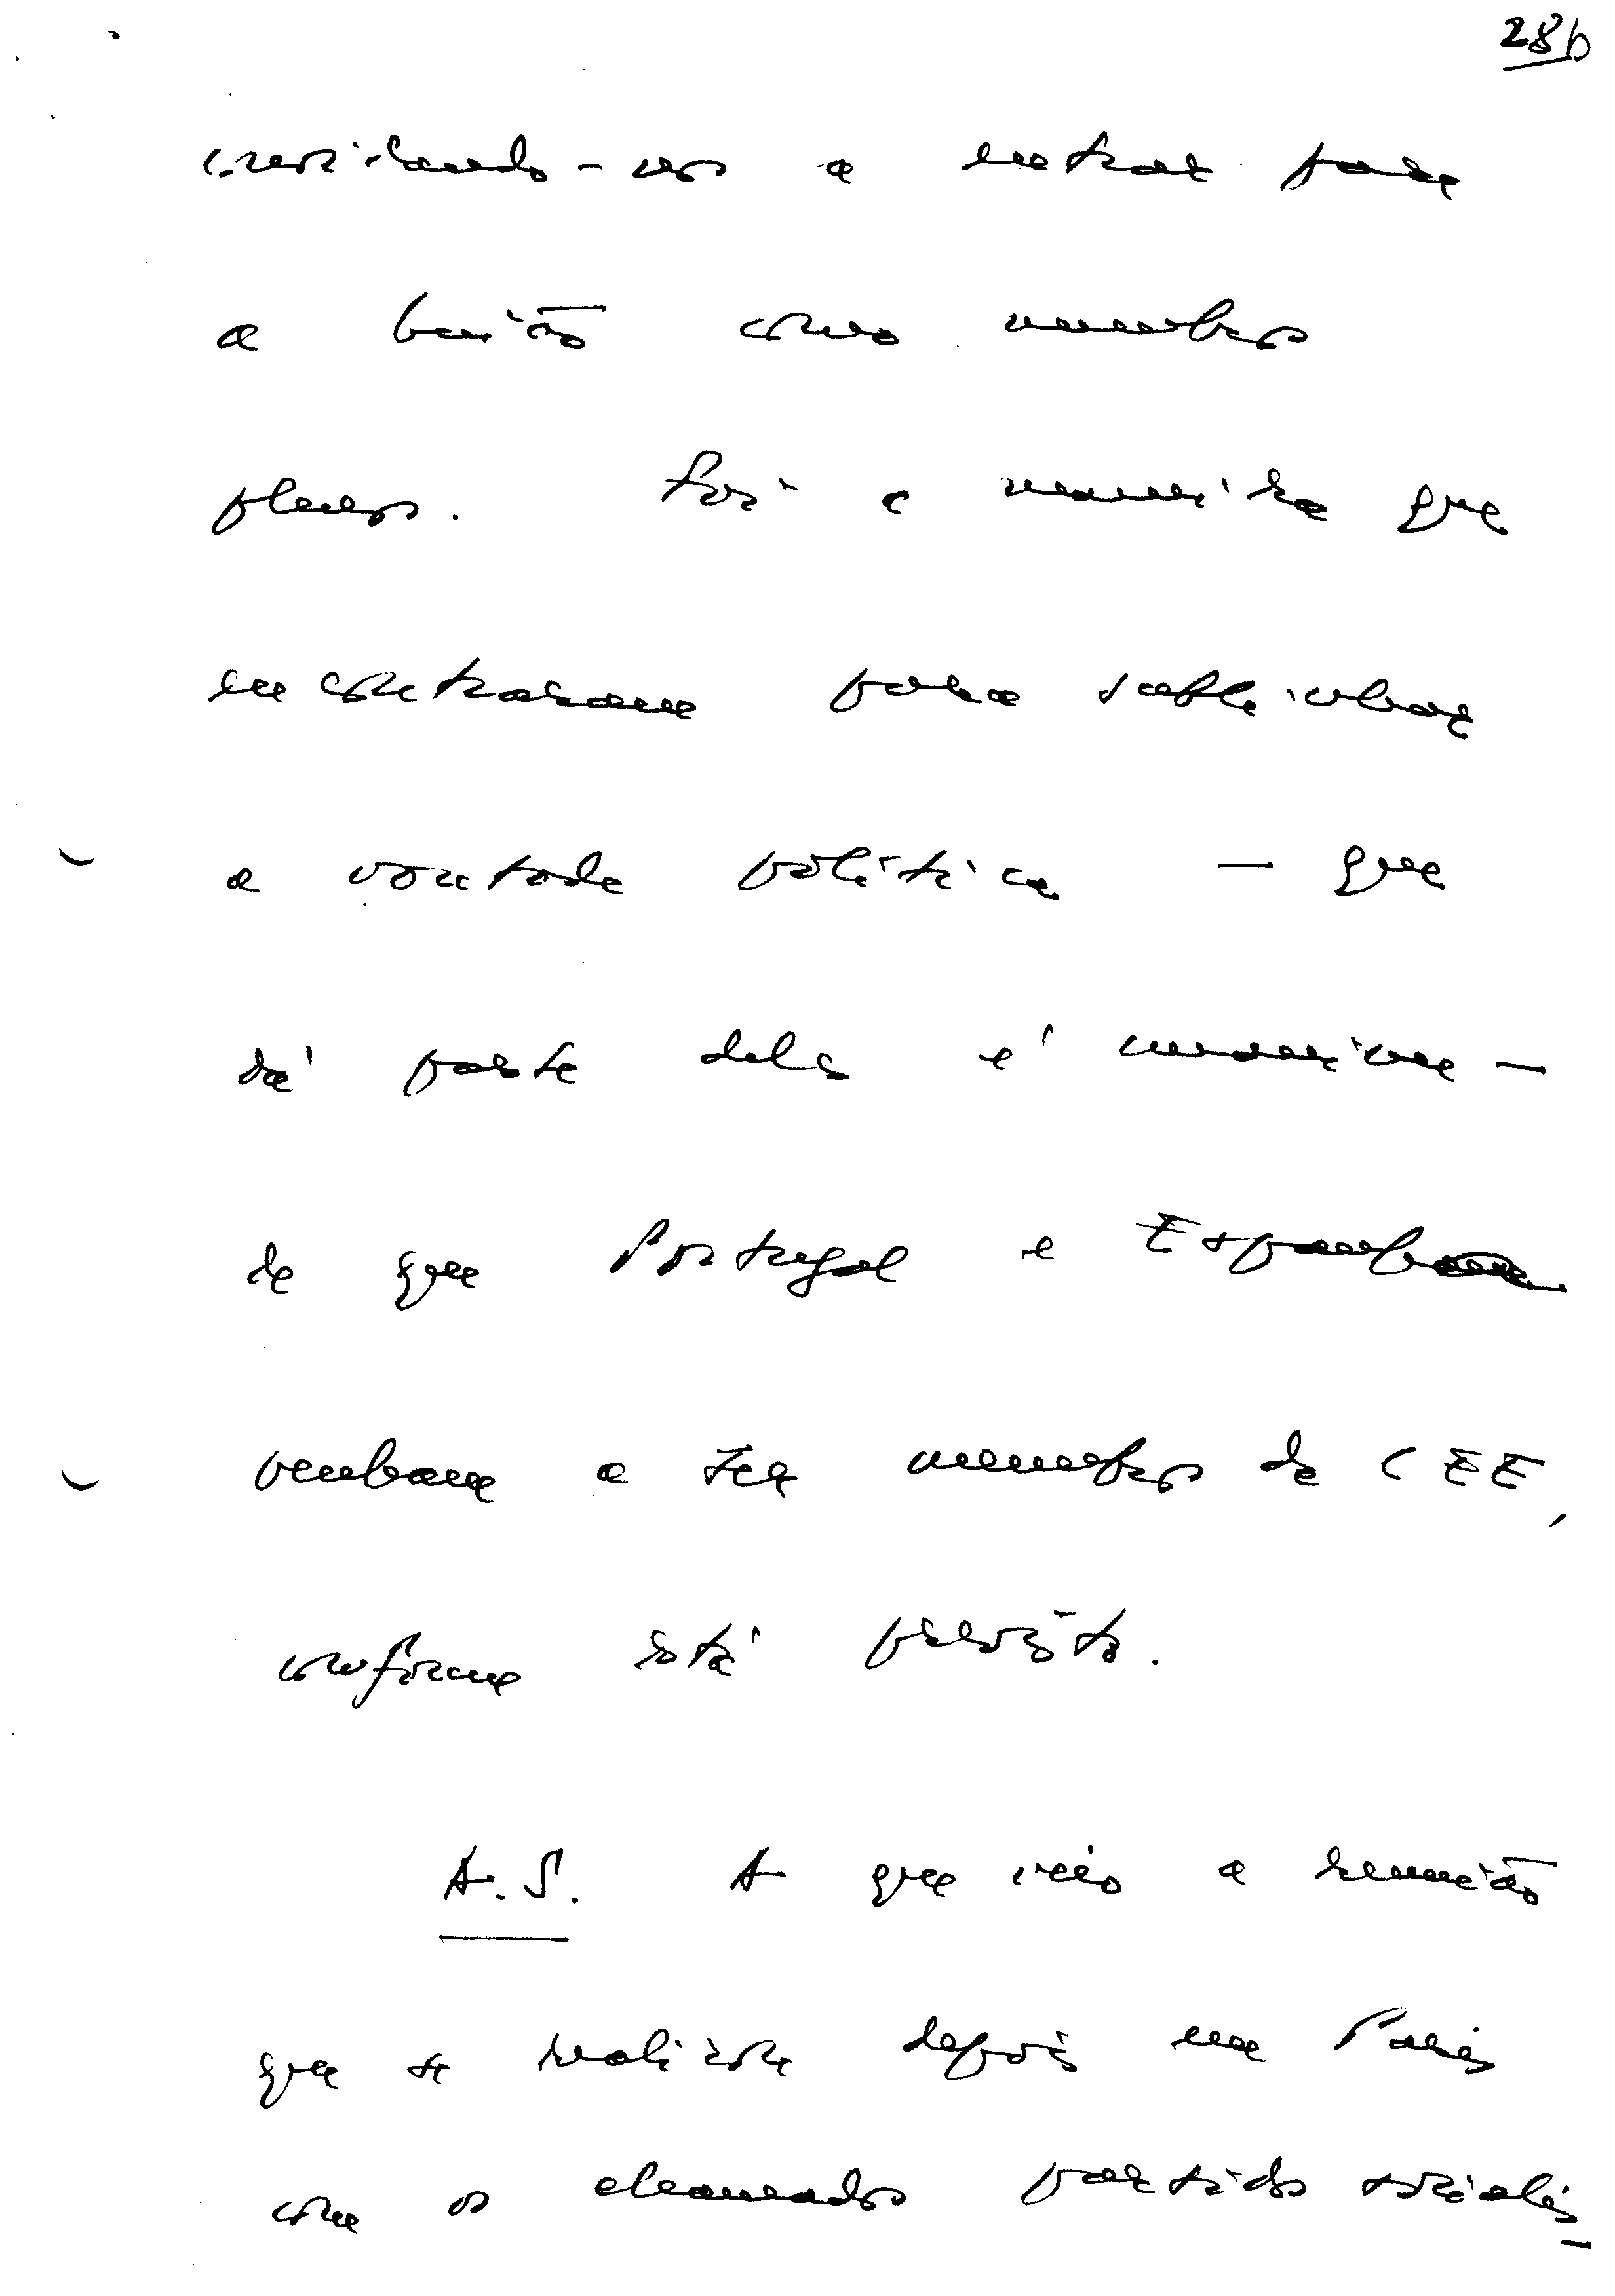 28b
convidando-nos a entrar para
a União como membros
plenos. Foi a maneira que
encontraram para sublinhar
a vontade política — que
da parte deles é unânime —
de que Portugal e Espanha
venham a ser membros da CEE,
conforme está previsto.
A.S. A que veio a reunião
que se realizou depois em Paris
com os chamados partidos socialis-